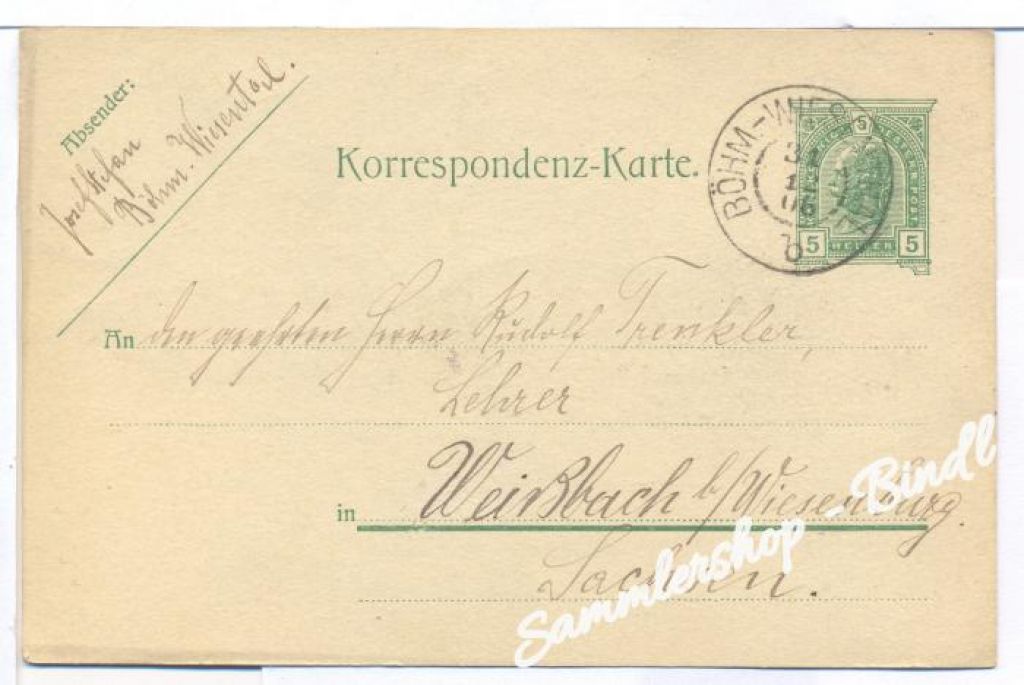 Absender:
Josef Stefan
Böhm. Wiesental.
Korrespondenz-Karte.
BÖHM.-WIES
5
5 HELLER 5
b
An den geehrten Herrn Rudolf Trenkler,
Lehrer
in Weißbach b/Wiesenburg.
Sachsen.
Sammlershop - Bindl